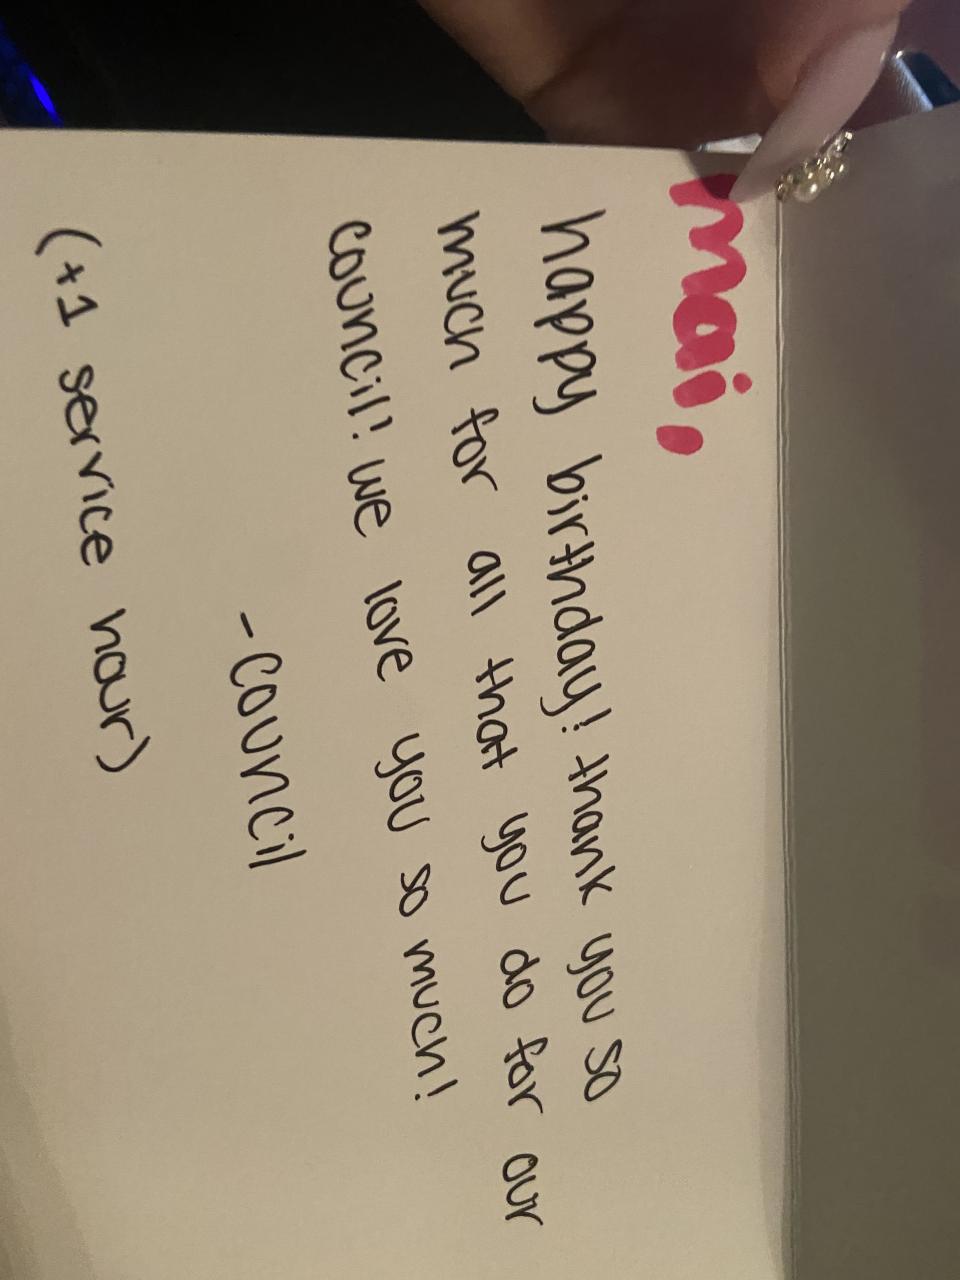 mai,
happy birthday! thank you so
much for all that you do for our
council! we love you so much!
-council
(+1 service hour)